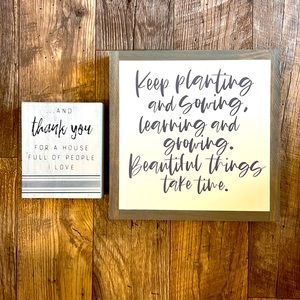 ...AND
thank you
FOR A HOUSE
FULL OF PEOPLE
I LOVE
Keep planting
and sowing,
learning and
growing.
Beautiful things
take time.